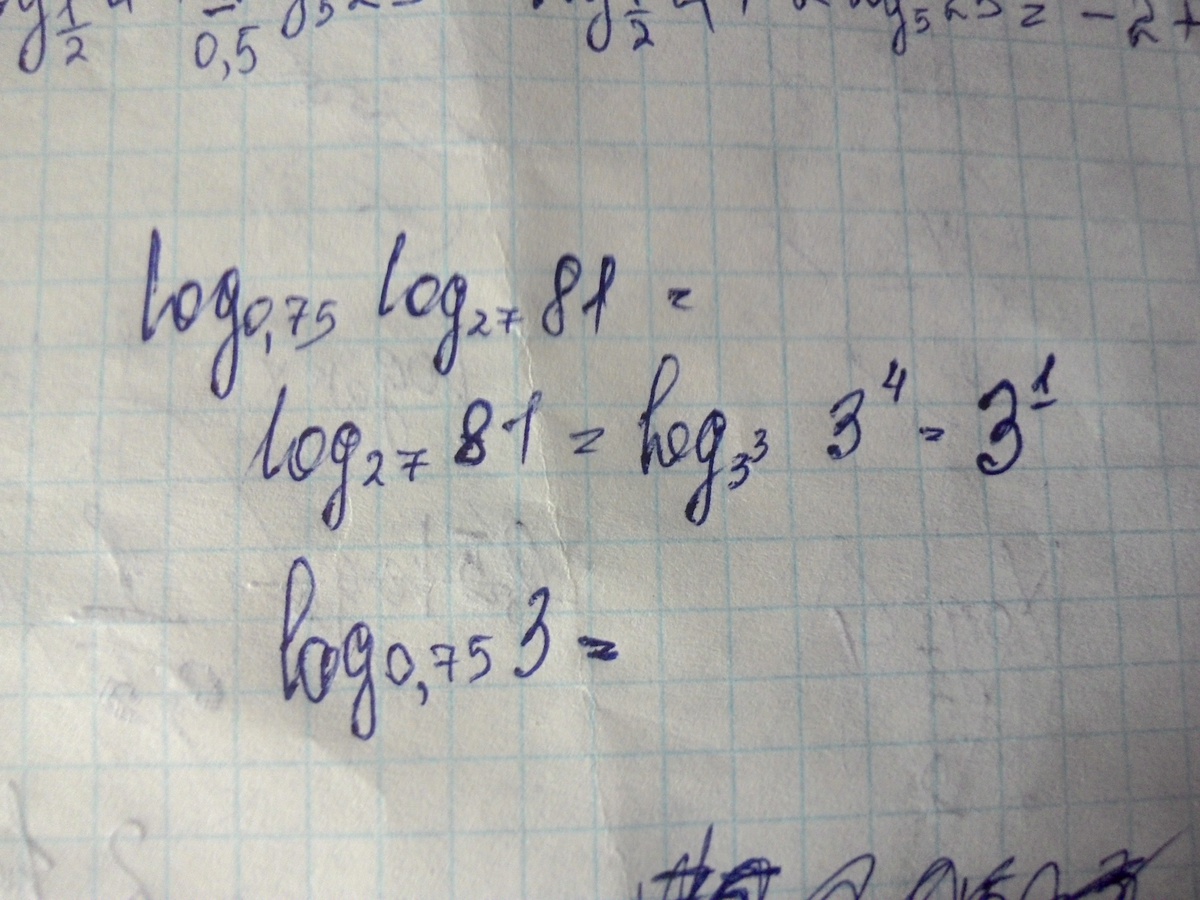 log_{1/2} 0,5 log_{1/2} 4 + 2 log_5 25 = -2 +
log_{0,75} log_{27} 81 =
log_{27} 81 = log_{3^3} 3^4 = 3^1
log_{0,75} 3 =